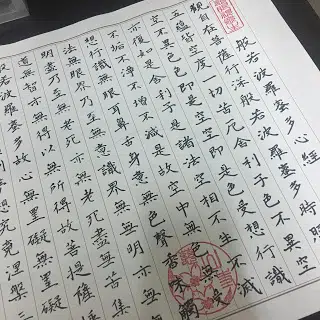 般若波羅蜜多心經
觀自在菩薩行深般若波羅蜜多時照
五蘊皆空度一切苦厄舍利子色不異空
不異色色即是空空即是色受想行識
亦復如是舍利子是諸法空相不生不滅
不垢不淨不增不減是故空中無色無受
想行識無眼耳鼻舌身意無色聲香味觸
法無眼界乃至無意識界無無明亦無
明盡乃至無老死亦無老死盡無苦集
道無智亦無得以無所得故菩提薩埵
般若波羅蜜多故心無罣礙無罣礙
想究竟涅槃三